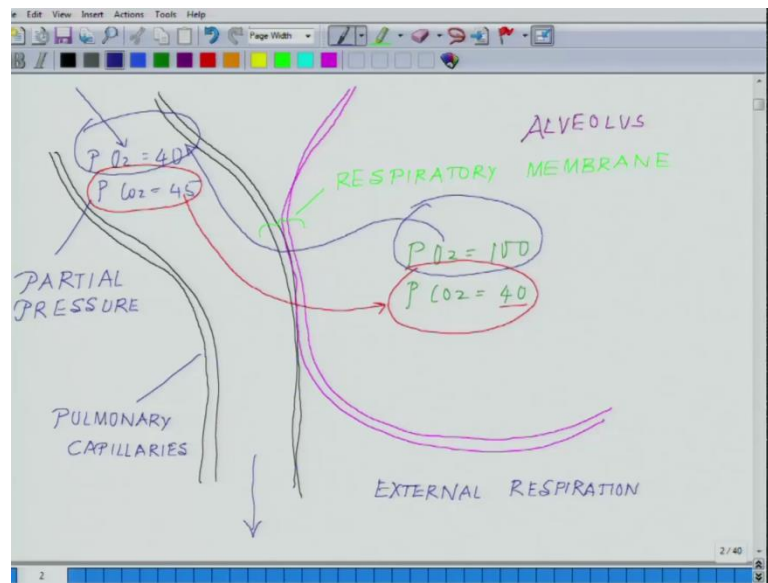 Edit View Insert Actions Tools Help
Page Width
B I
ALVEOLUS
P O2 = 40
RESPIRATORY MEMBRANE
P CO2 = 45
P O2 = 100
P CO2 = 40
PARTIAL
PRESSURE
PULMONARY
CAPILLARIES
EXTERNAL RESPIRATION
2 / 40
2